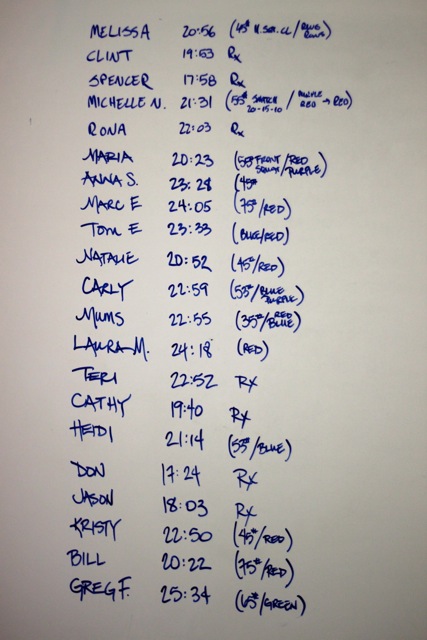 MELISSA 20:56 (45# H.SQ.CL / BLUE
CLINT 19:53 Rx
SPENCER 17:58 Rx
MICHELLE N. 21:31 (55# SNATCH 20-15-10 / PURPLE RED → RED)
RONA 22:03 Rx
MARIA 20:23 (55# FRONT SQUAT / RED PURPLE)
ANNA S. 23:28 (45#
MARC E 24:05 (75#/RED)
TOM E 23:33 (BLUE/RED)
NATALIE 20:52 (45#/RED)
CARLY 22:59 (55#/BLUE PURPLE)
MUMS 22:55 (35#/RED BLUE)
LAURA M. 24:18 (RED)
TERI 22:52 Rx
CATHY 19:40 Rx
HEIDI 21:14 (55#/BLUE)
DON 17:24 Rx
JASON 18:03 Rx
KRISTY 22:50 (45#/RED)
BILL 20:22 (75#/RED)
GREG F. 25:34 (65#/GREEN)